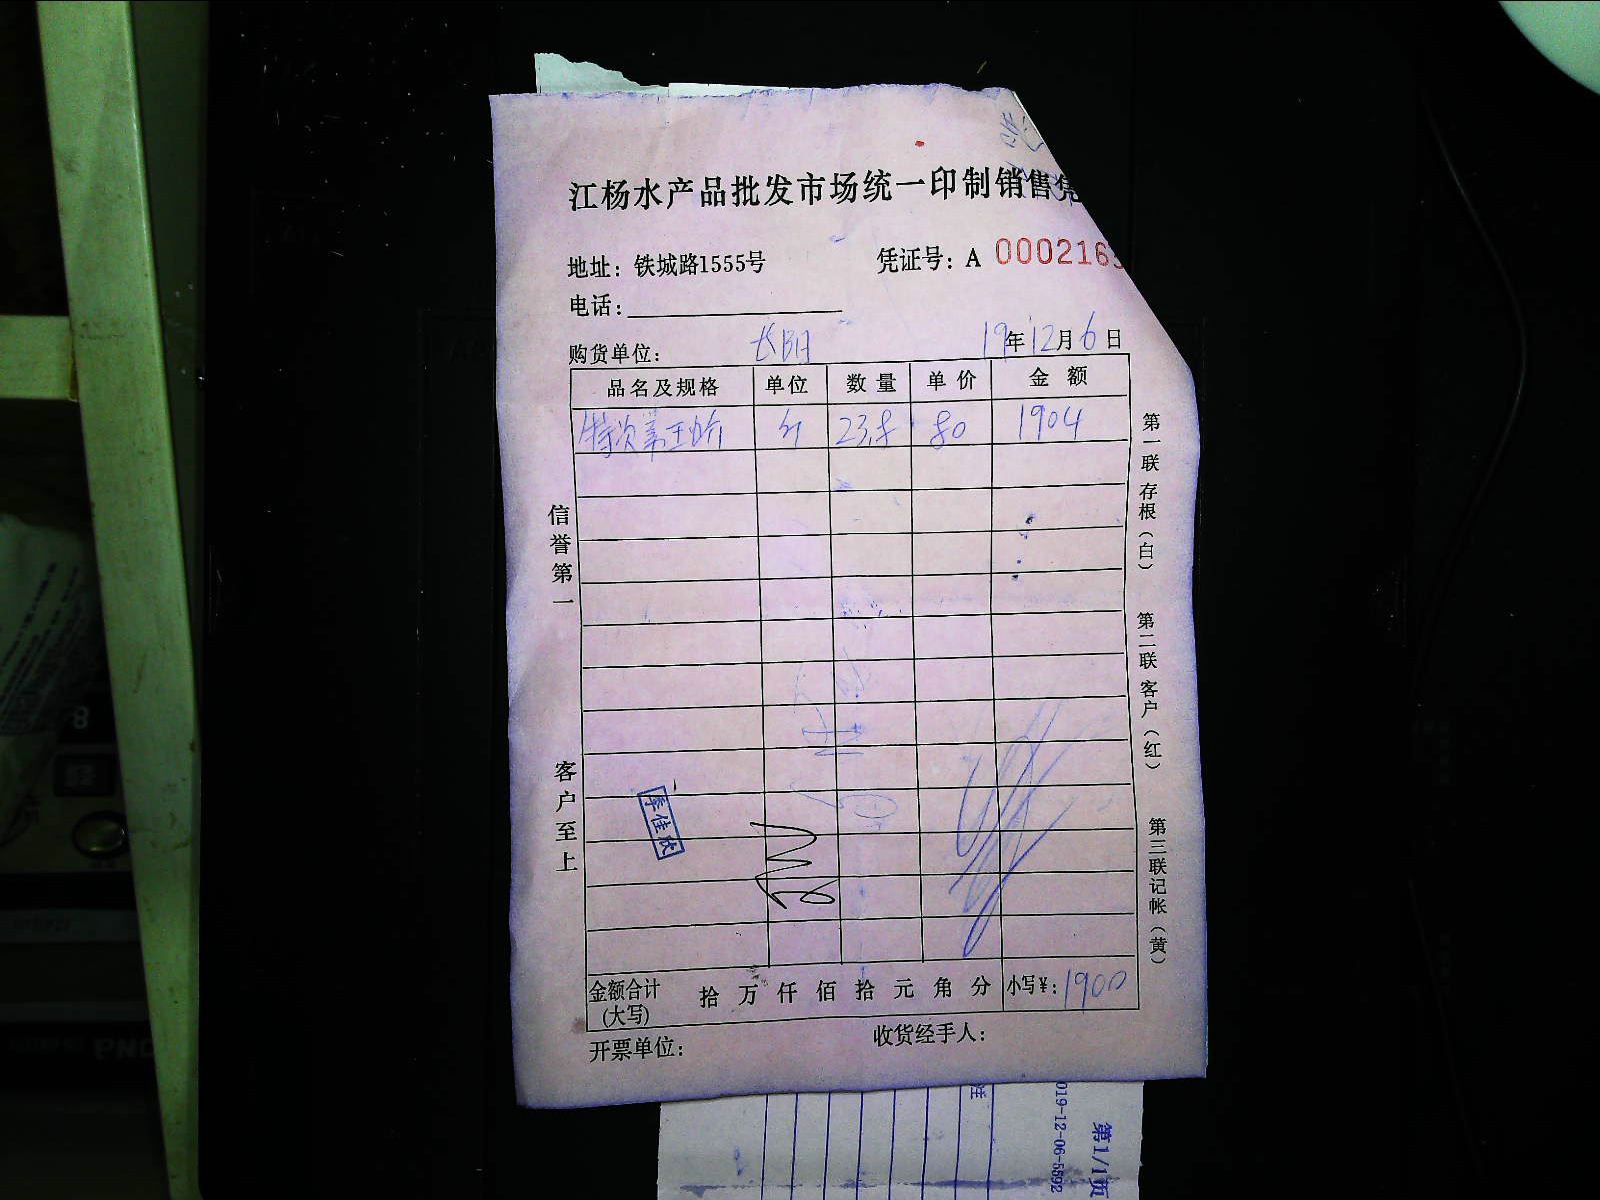 江杨水产品批发市场统一印制销售凭
地址：铁城路1555号 凭证号：A 000216
电话：
购货单位： 长阳 19年12月6日
品名及规格 单位 数量 单价 金额
斤 23.8 80 1904
信誉第一
客户至上
第一联 存根（白）
第二联 客户（红）
第三联 记帐（黄）
季佳欣
金额合计(大写) 拾 万 仟 佰 拾 元 角 分 小写¥：1900
开票单位： 收货经手人：
019-12-06-5592
第1/1页